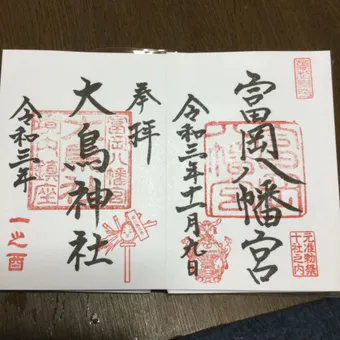 富岡八幡宮
令和三年十一月九日
元准勅祭
十社之内
奉拝
大鳥神社
富岡八幡宮
境内鎮座
令和三年
一之酉